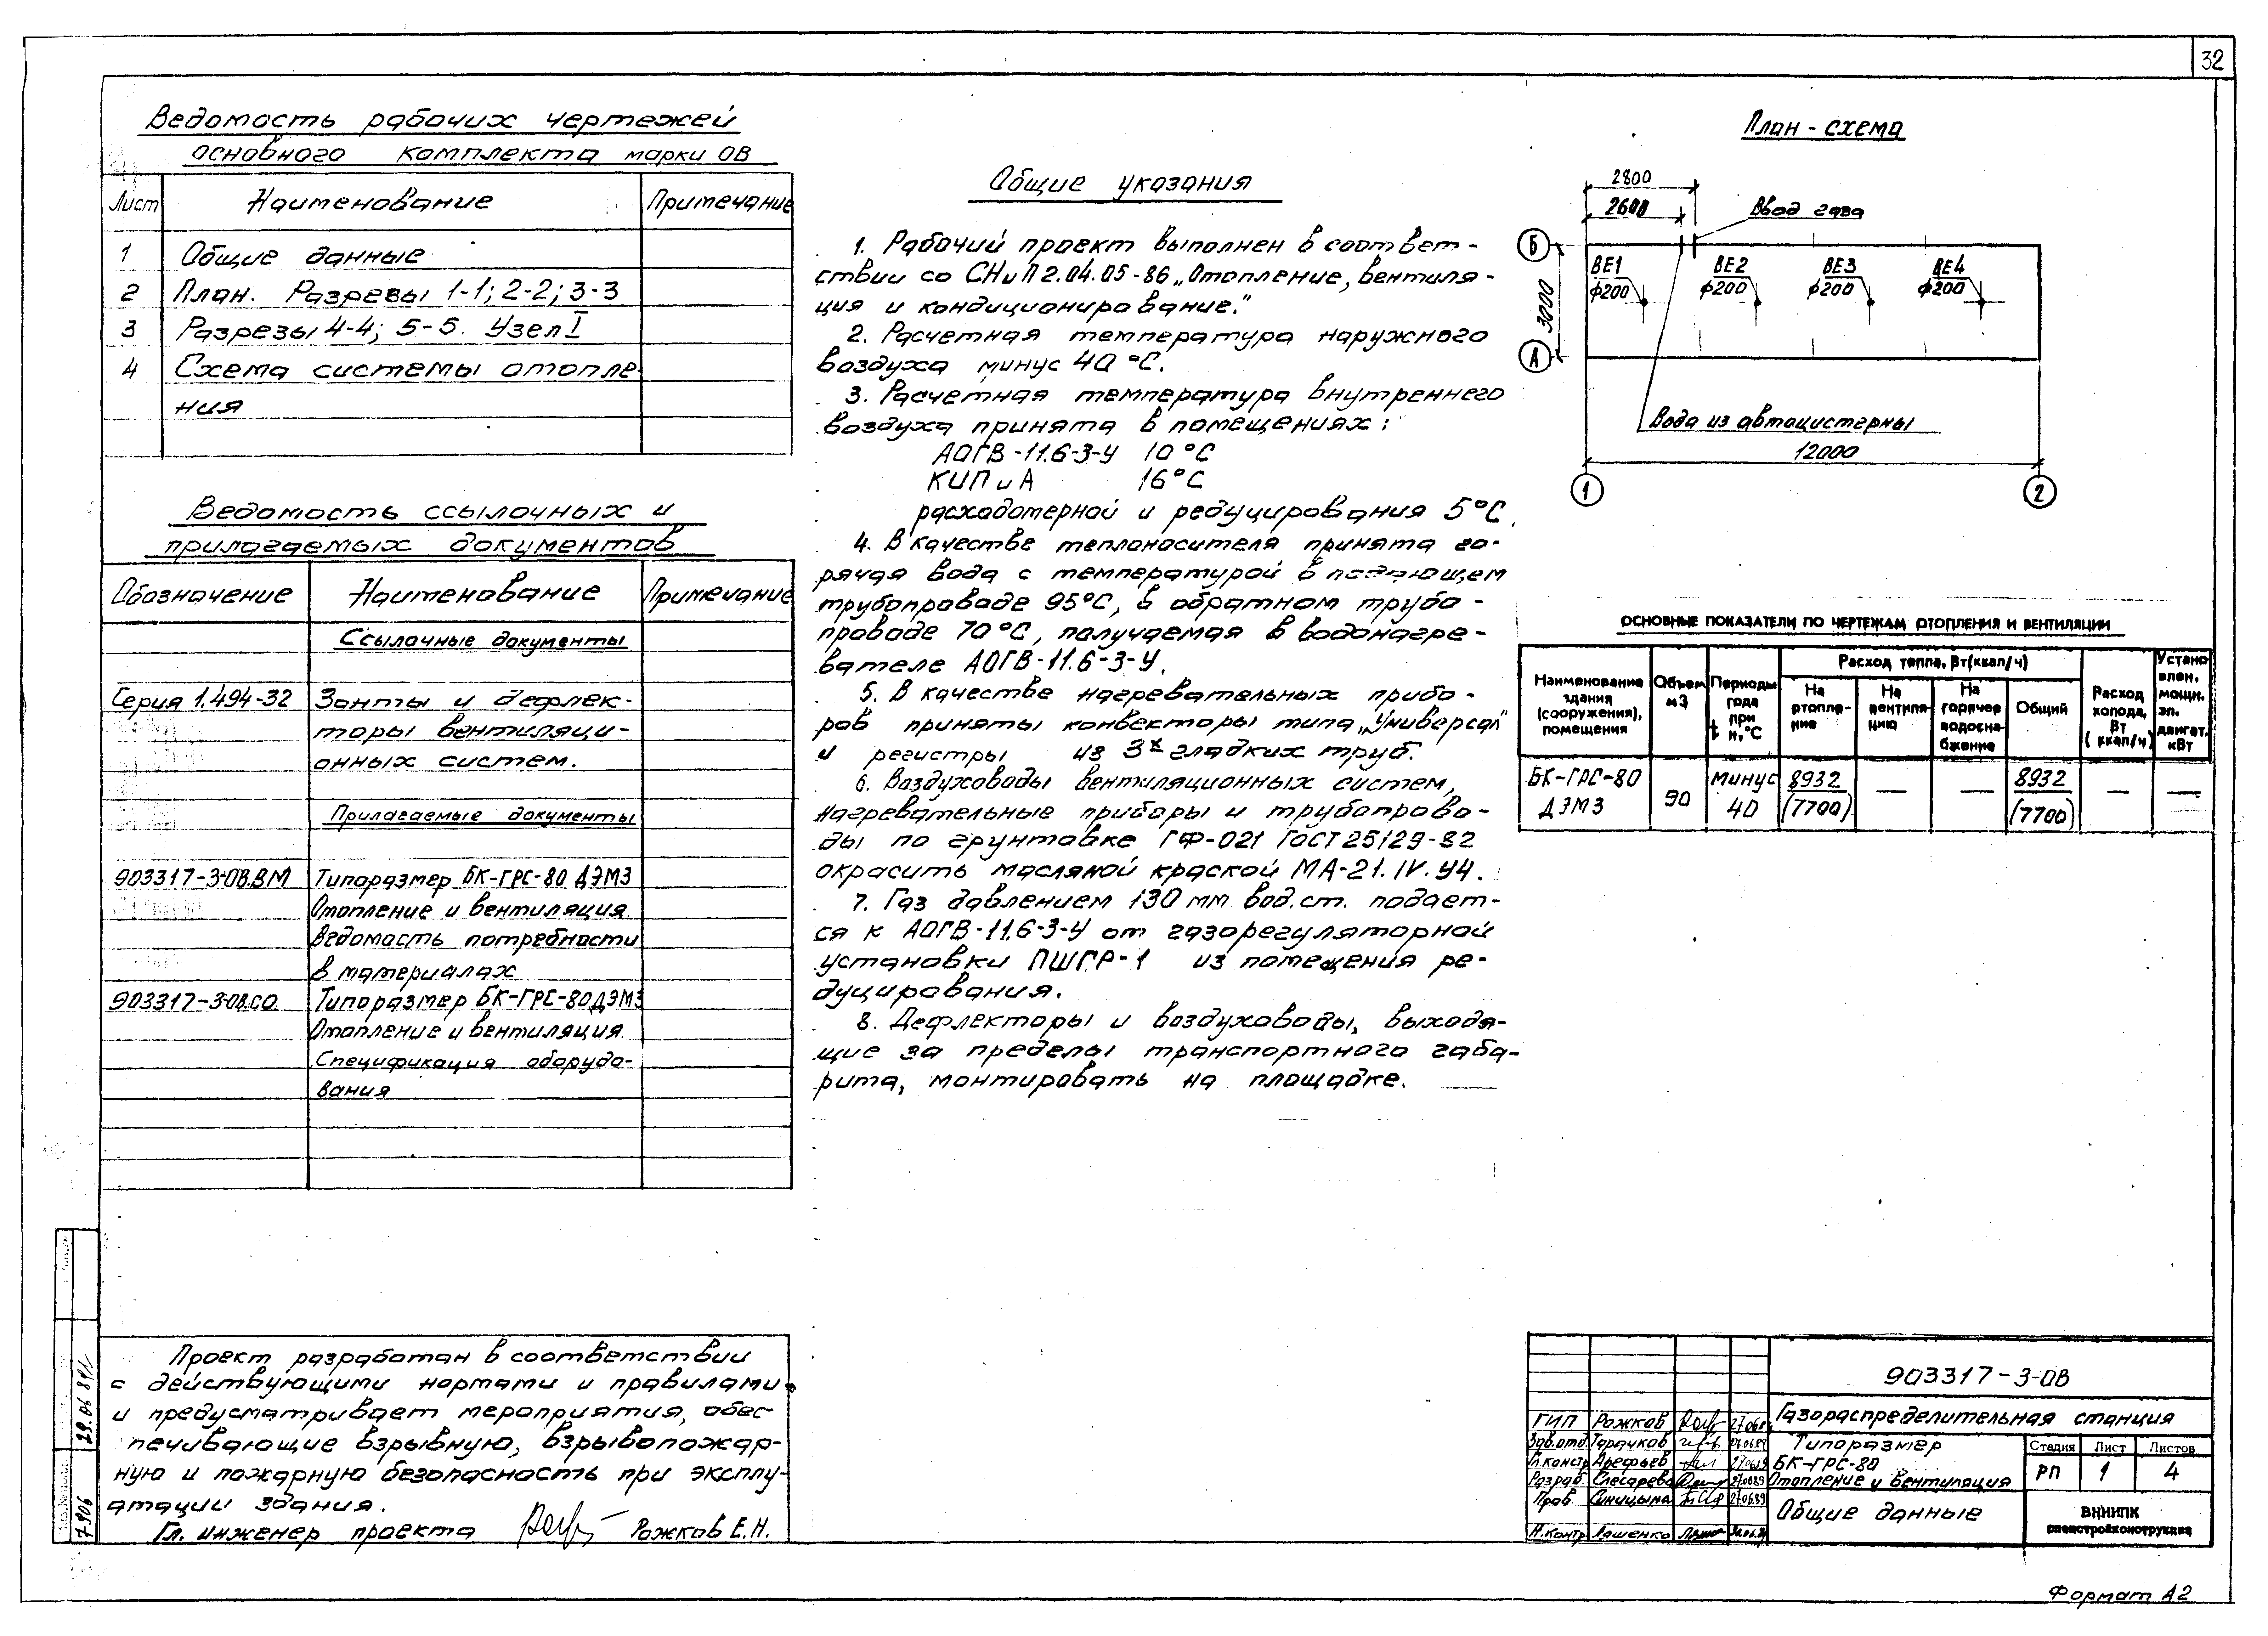 32
Ведомость рабочих чертежей
основного комплекта марки ОВ
Лист Наименование Примечание
1 Общие данные
2 План. Разрезы 1-1; 2-2; 3-3
3 Разрезы 4-4; 5-5. Узел I
4 Схема системы отопле-
ния
Ведомость ссылочных и
прилагаемых документов
Обозначение Наименование Примечание
Ссылочные документы
Серия 1.494-32 Зонты и дефлек-
торы вентиляци-
онных систем.
Прилагаемые документы
903317-3-ОВ.ВМ Типоразмер БК-ГРС-80 ДЭМЗ
Отопление и вентиляция.
Ведомость потребности
в материалах
903317-3-ОВ.СО Типоразмер БК-ГРС-80 ДЭМЗ
Отопление и вентиляция.
Спецификация оборудо-
вания
Проект разработан в соответствии
с действующими нормами и правилами
и предусматривает мероприятия, обес-
печивающие взрывную, взрывопожар-
ную и пожарную безопасность при эксплу-
атации здания.
Гл. инженер проекта Рожков Е.Н.
7906
Общие указания
1. Рабочий проект выполнен в соответ-
ствии со СНиП 2.04.05-86 „Отопление, вентиля-
ция и кондиционирование."
2. Расчетная температура наружного
воздуха минус 40 °С.
3. Расчетная температура внутреннего
воздуха принята в помещениях:
АОГВ-11.6-3-У 10 °С
КИПиА 16 °С
расходомерной и редуцирования 5 °С.
4. В качестве теплоносителя принята го-
рячая вода с температурой в подающем
трубопроводе 95°С, в обратном трубо-
проводе 70 °С, получаемая в водонагре-
вателе АОГВ-11.6-3-У.
5. В качестве нагревательных прибо-
ров приняты конвекторы типа „Универсал"
и регистры из 3х гладких труб.
6. Воздуховоды вентиляционных систем,
нагревательные приборы и трубопрово-
ды по грунтовке ГФ-021 ГОСТ 25129-82
окрасить масляной краской МА-21.IV.У4.
7. Газ давлением 130 мм вод.ст. подает-
ся к АОГВ-11.6-3-У от газорегуляторной
установки ПШГР-1 из помещения ре-
дуцирования.
8. Дефлекторы и воздуховоды, выходя-
щие за пределы транспортного габа-
рита, монтировать на площадке.
План-схема
2800
2600 Ввод газа
Б
ВЕ1 ВЕ2 ВЕ3 ВЕ4
ф200 ф200 ф200 ф200
3000
А
Вода из автоцистерны
12000
1 2
ОСНОВНЫЕ ПОКАЗАТЕЛИ ПО ЧЕРТЕЖАМ ОТОПЛЕНИЯ И ВЕНТИЛЯЦИИ
Наименование здания (сооружения), помещения
Объем м3
Периоды года при tн, °С
Расход тепла, Вт(ккал/ч)
На отопле-ние
На вентиля-цию
На горячее водосна-бжение
Общий
Расход холода, Вт (ккал/ч)
Устано-влен. мощн. эл. двигат. кВт
БК-ГРС-80 минус 8932 — — 8932 — —
ДЭМЗ 90 40 (7700) (7700)
903317-3-ОВ
Газораспределительная станция
ГИП Рожков 27.06.89
Зав.отд. Тарачков
Гл.констр Арефьев 27.06.89
Разраб. Слесарева 27.06.89
Пров. Синицына 27.06.89
Н.контр Ляшенко
Типоразмер
БК-ГРС-80
Отопление и вентиляция
Стадия Лист Листов
РП 1 4
Общие данные
ВНИПК
спецстройконструкция
Формат А2